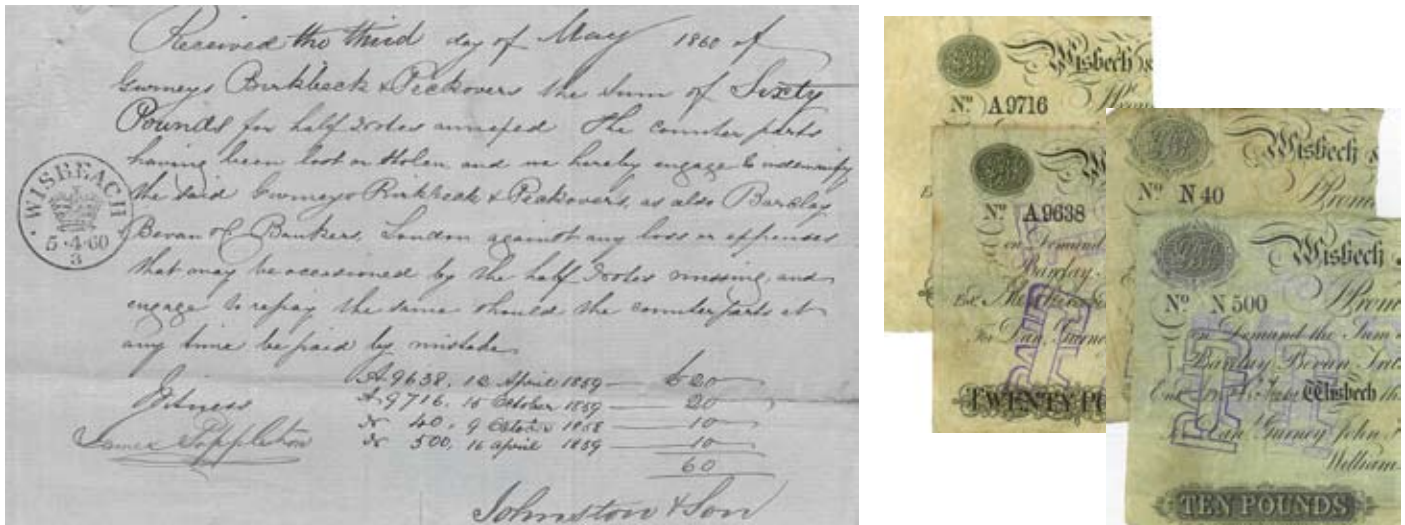 Received the third day of May 1860 of
Gurneys Birkbeck & Peckovers the Sum of Sixty
Pounds for half Notes annexed The counter parts
having been lost or Stolen and we hereby engage to indemnify
the said Gurneys Birkbeck & Peckovers, as also Barclay
Bevan & C Bankers, London against any loss or expenses
that may be occasioned by the half Notes missing and
engage to repay the same should the counterparts at
any time be paid by mistake
A 9638, 12 April 1859 — £20
A 9716, 15 October 1859 — 20
N 40, 9 October 1858 — 10
N 500, 16 April 1859 — 10
60
Witness
James Poppleton
Johnston & Son
WISBEACH
5·4·60
3
Wisbech &
No A9716
Prom
No A9638
on Demand
Barclay
Ent
For Dan. Gurne
PAID
TWENTY PO
Wisbech &
No N 40
Prom
Wisbech
No N 500
Prom
on Demand the Sum
Barclay Bevan
Wisbech
Dan Gurney John
William
TEN POUNDS